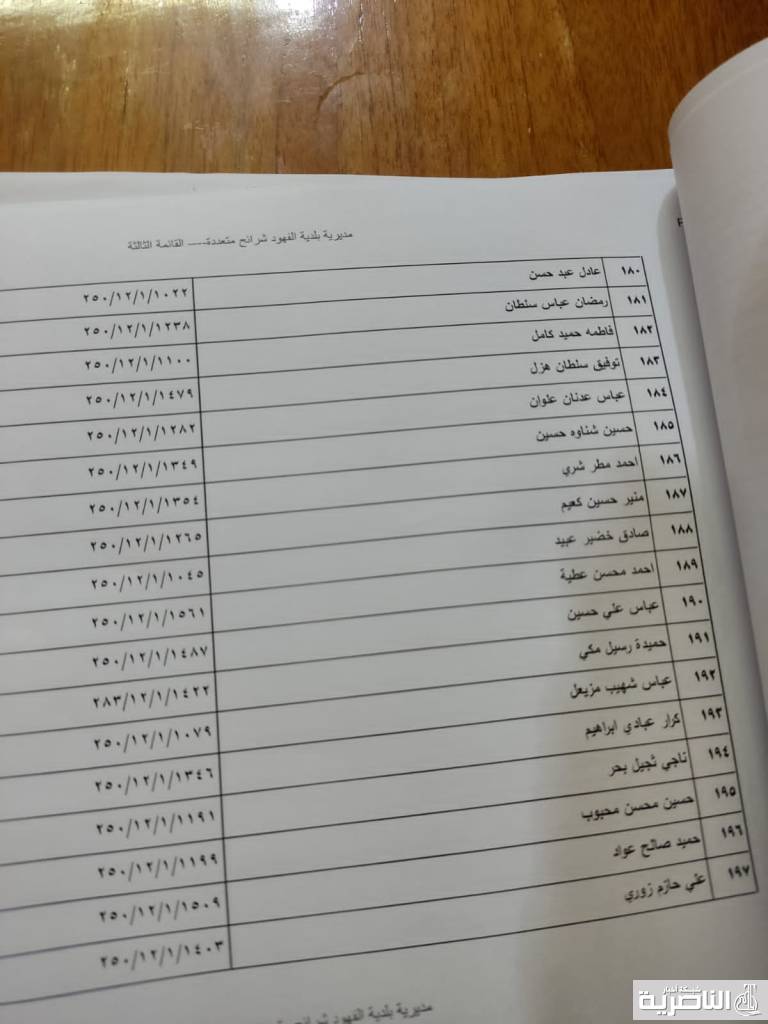 مديرية بلدية الفهود شرائح متعددة---- القائمة الثالثة
١٨٠ عادل عبد حسن ٢٥٠/١٢/١/١٠٢٢
١٨١ رمضان عباس سلطان ٢٥٠/١٢/١/١٢٣٨
١٨٢ فاطمه حميد كامل ٢٥٠/١٢/١/١١٠٠
١٨٣ توفيق سلطان هزل ٢٥٠/١٢/١/١٤٧٩
١٨٤ عباس عدنان علوان ٢٥٠/١٢/١/١٢٨٢
١٨٥ حسين شناوه حسين ٢٥٠/١٢/١/١٣٤٩
١٨٦ احمد مطر شري ٢٥٠/١٢/١/١٣٥٤
١٨٧ منير حسين كعيم ٢٥٠/١٢/١/١٢٦٥
١٨٨ صادق خضير عبيد ٢٥٠/١٢/١/١٠٤٥
١٨٩ احمد محسن عطية ٢٥٠/١٢/١/١٥٦١
١٩٠ عباس علي حسين ٢٥٠/١٢/١/١٤٨٧
١٩١ حميدة رسيل مكي ٢٨٣/١٢/١/١٤٢٢
١٩٢ عباس شهيب مزيعل ٢٥٠/١٢/١/١٠٧٩
١٩٣ كرار عبادي ابراهيم ٢٥٠/١٢/١/١٣٤٦
١٩٤ ناجي ثجيل بحر ٢٥٠/١٢/١/١١٩١
١٩٥ حسين محسن محبوب ٢٥٠/١٢/١/١١٩٩
١٩٦ حميد صالح عواد ٢٥٠/١٢/١/١٥٠٩
١٩٧ علي حازم زوري ٢٥٠/١٢/١/١٤٠٣
مديرية بلدية الفهود شرائح
شبكة أخبار
الناصرية